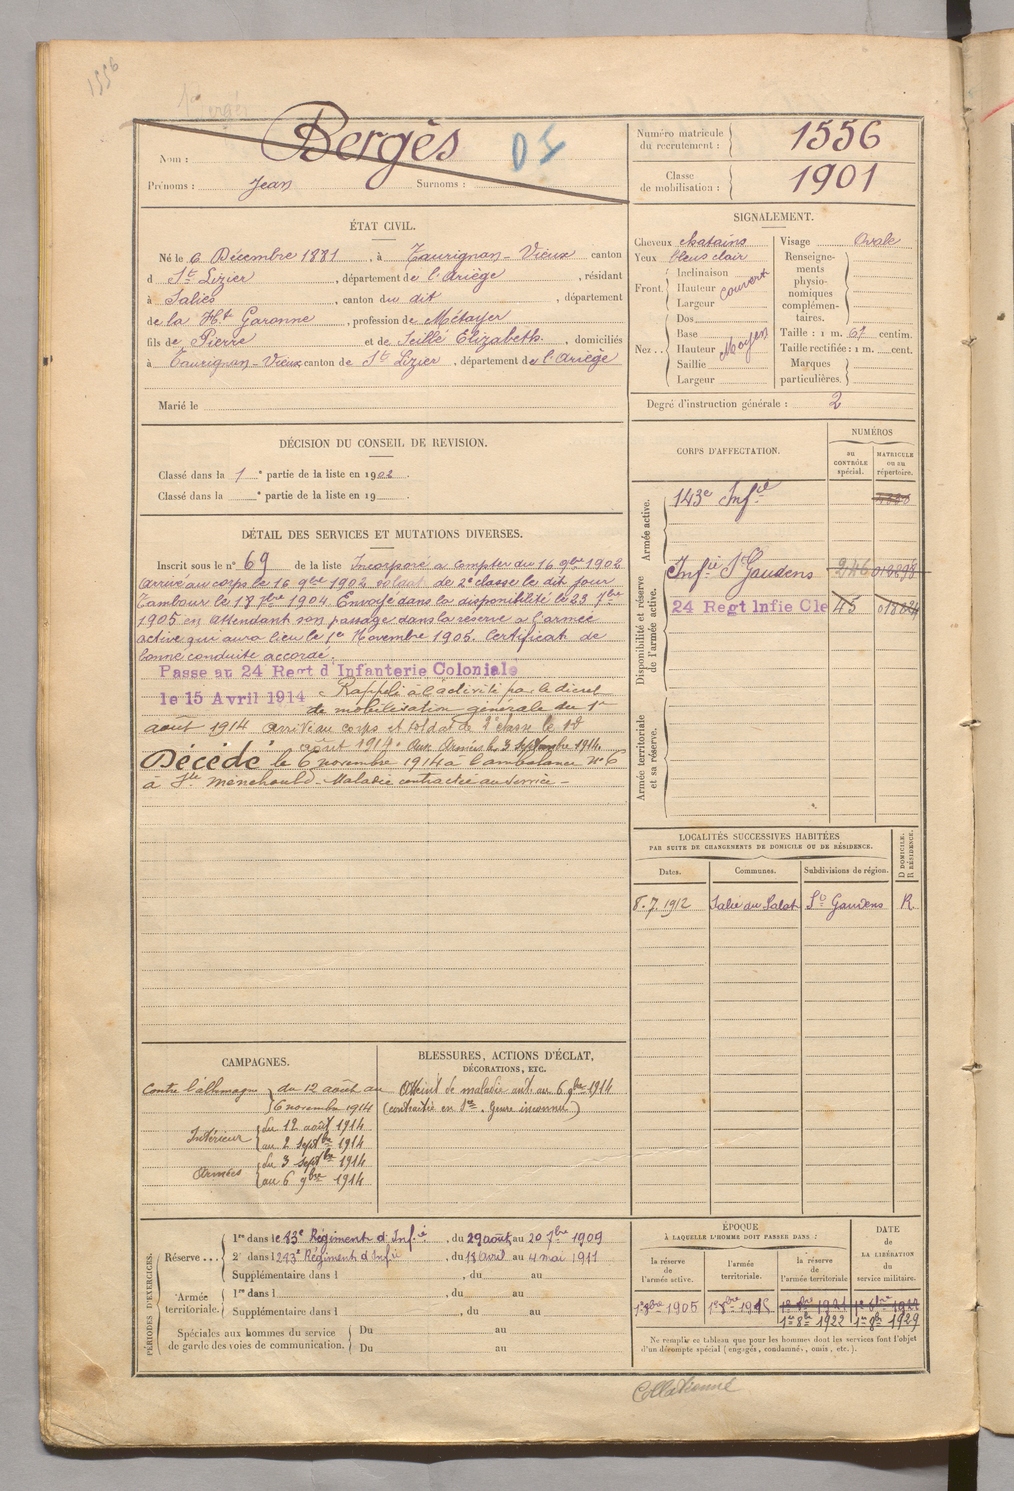 1556
Nom : Bergès
D I
Prénoms : Jean Surnoms :
Numéro matricule du recrutement : 1556
Classe de mobilisation : 1901
ÉTAT CIVIL.
Né le 6 Décembre 1881, à Taurignan-Vieux canton
d St Lizier, département de l'Ariège, résidant
à Salies, canton du dit, département
de la Hte Garonne, profession de Métayer
fils de Pierre et de Seillé Elizabeth, domiciliés
à Taurignan-Vieux canton de St Lizier, département de l'Ariège
Marié le
SIGNALEMENT.
Cheveux chatains
Yeux bleus clair
Front. Inclinaison
Hauteur couvert
Largeur
Nez.. Dos
Base
Hauteur Moyen
Saillie
Largeur
Visage Ovale
Renseignements physionomiques complémentaires.
Taille : 1 m. 67 centim.
Taille rectifiée : 1 m. cent.
Marques particulières.
Degré d'instruction générale : 2
DÉCISION DU CONSEIL DE REVISION.
Classé dans la 1 e partie de la liste en 1902.
Classé dans la e partie de la liste en 19 .
CORPS D'AFFECTATION.
NUMÉROS
au CONTRÔLE spécial.
MATRICULE ou au répertoire.
Armée active.
143e Infie
Disponibilité et réserve de l'armée active.
Infie St Gaudens 246
24 Regt Infie Cle 45
Armée territoriale et sa réserve.
DÉTAIL DES SERVICES ET MUTATIONS DIVERSES.
Inscrit sous le n° 69 de la liste Incorporé à compter du 16 9bre 1902
arrivé au corps le 16 9bre 1902 soldat de 2e classe le dit jour
Tambour le 18 7bre 1904. Envoyé dans la disponibilité le 23 7bre
1905 en attendant son passage dans la réserve de l'armée
active qui aura lieu le 1er Novembre 1905. Certificat de
bonne conduite accordé.
Passe au 24 Regt d'Infanterie Coloniale
le 15 Avril 1914 Rappelé à l'activité par le décret
de mobilisation générale du 1er
août 1914 arrivé au corps et soldat de 2e classe le 12
août 1914. Aux Armées le 3 septembre 1914.
Décédé le 6 novembre 1914 à l'ambulance n° 6
à Ste Ménehould - Maladie contractée au service -
LOCALITÉS SUCCESSIVES HABITÉES
PAR SUITE DE CHANGEMENTS DE DOMICILE OU DE RÉSIDENCE.
Dates. Communes. Subdivisions de région. D DOMICILE. R RÉSIDENCE.
8.7.1912 Salie du Salat St Gaudens R
CAMPAGNES.
Contre l'allemagne du 12 août au
6 novembre 1914
Intérieur du 12 août 1914
au 2 septbre 1914
Armées du 3 septbre 1914
au 6 9bre 1914
BLESSURES, ACTIONS D'ÉCLAT,
DÉCORATIONS, ETC.
Atteint de maladie ant. au 6 9bre 1914
(contractée en Sce. Genre inconnu)
PÉRIODES D'EXERCICES.
Réserve ... 1re dans le 83e Régiment d'Infie, du 29 août au 20 7bre 1909
2e dans l 283e Régiment d'Infie, du 18 avril au 4 mai 1911
Supplémentaire dans l , du au
Armée territoriale. 1re dans l , du au
Supplémentaire dans l , du au
Spéciales aux hommes du service de garde des voies de communication. Du au
Du au
ÉPOQUE
À LAQUELLE L'HOMME DOIT PASSER DANS :
la réserve de l'armée active. l'armée territoriale. la réserve de l'armée territoriale
DATE DE LA LIBÉRATION du service militaire.
1er 9bre 1905
1er 8bre 1922 1er 8bre 1929
Ne remplir ce tableau que pour les hommes dont les services font l'objet
d'un décompte spécial (engagés, condamnés, omis, etc.).
Collationné